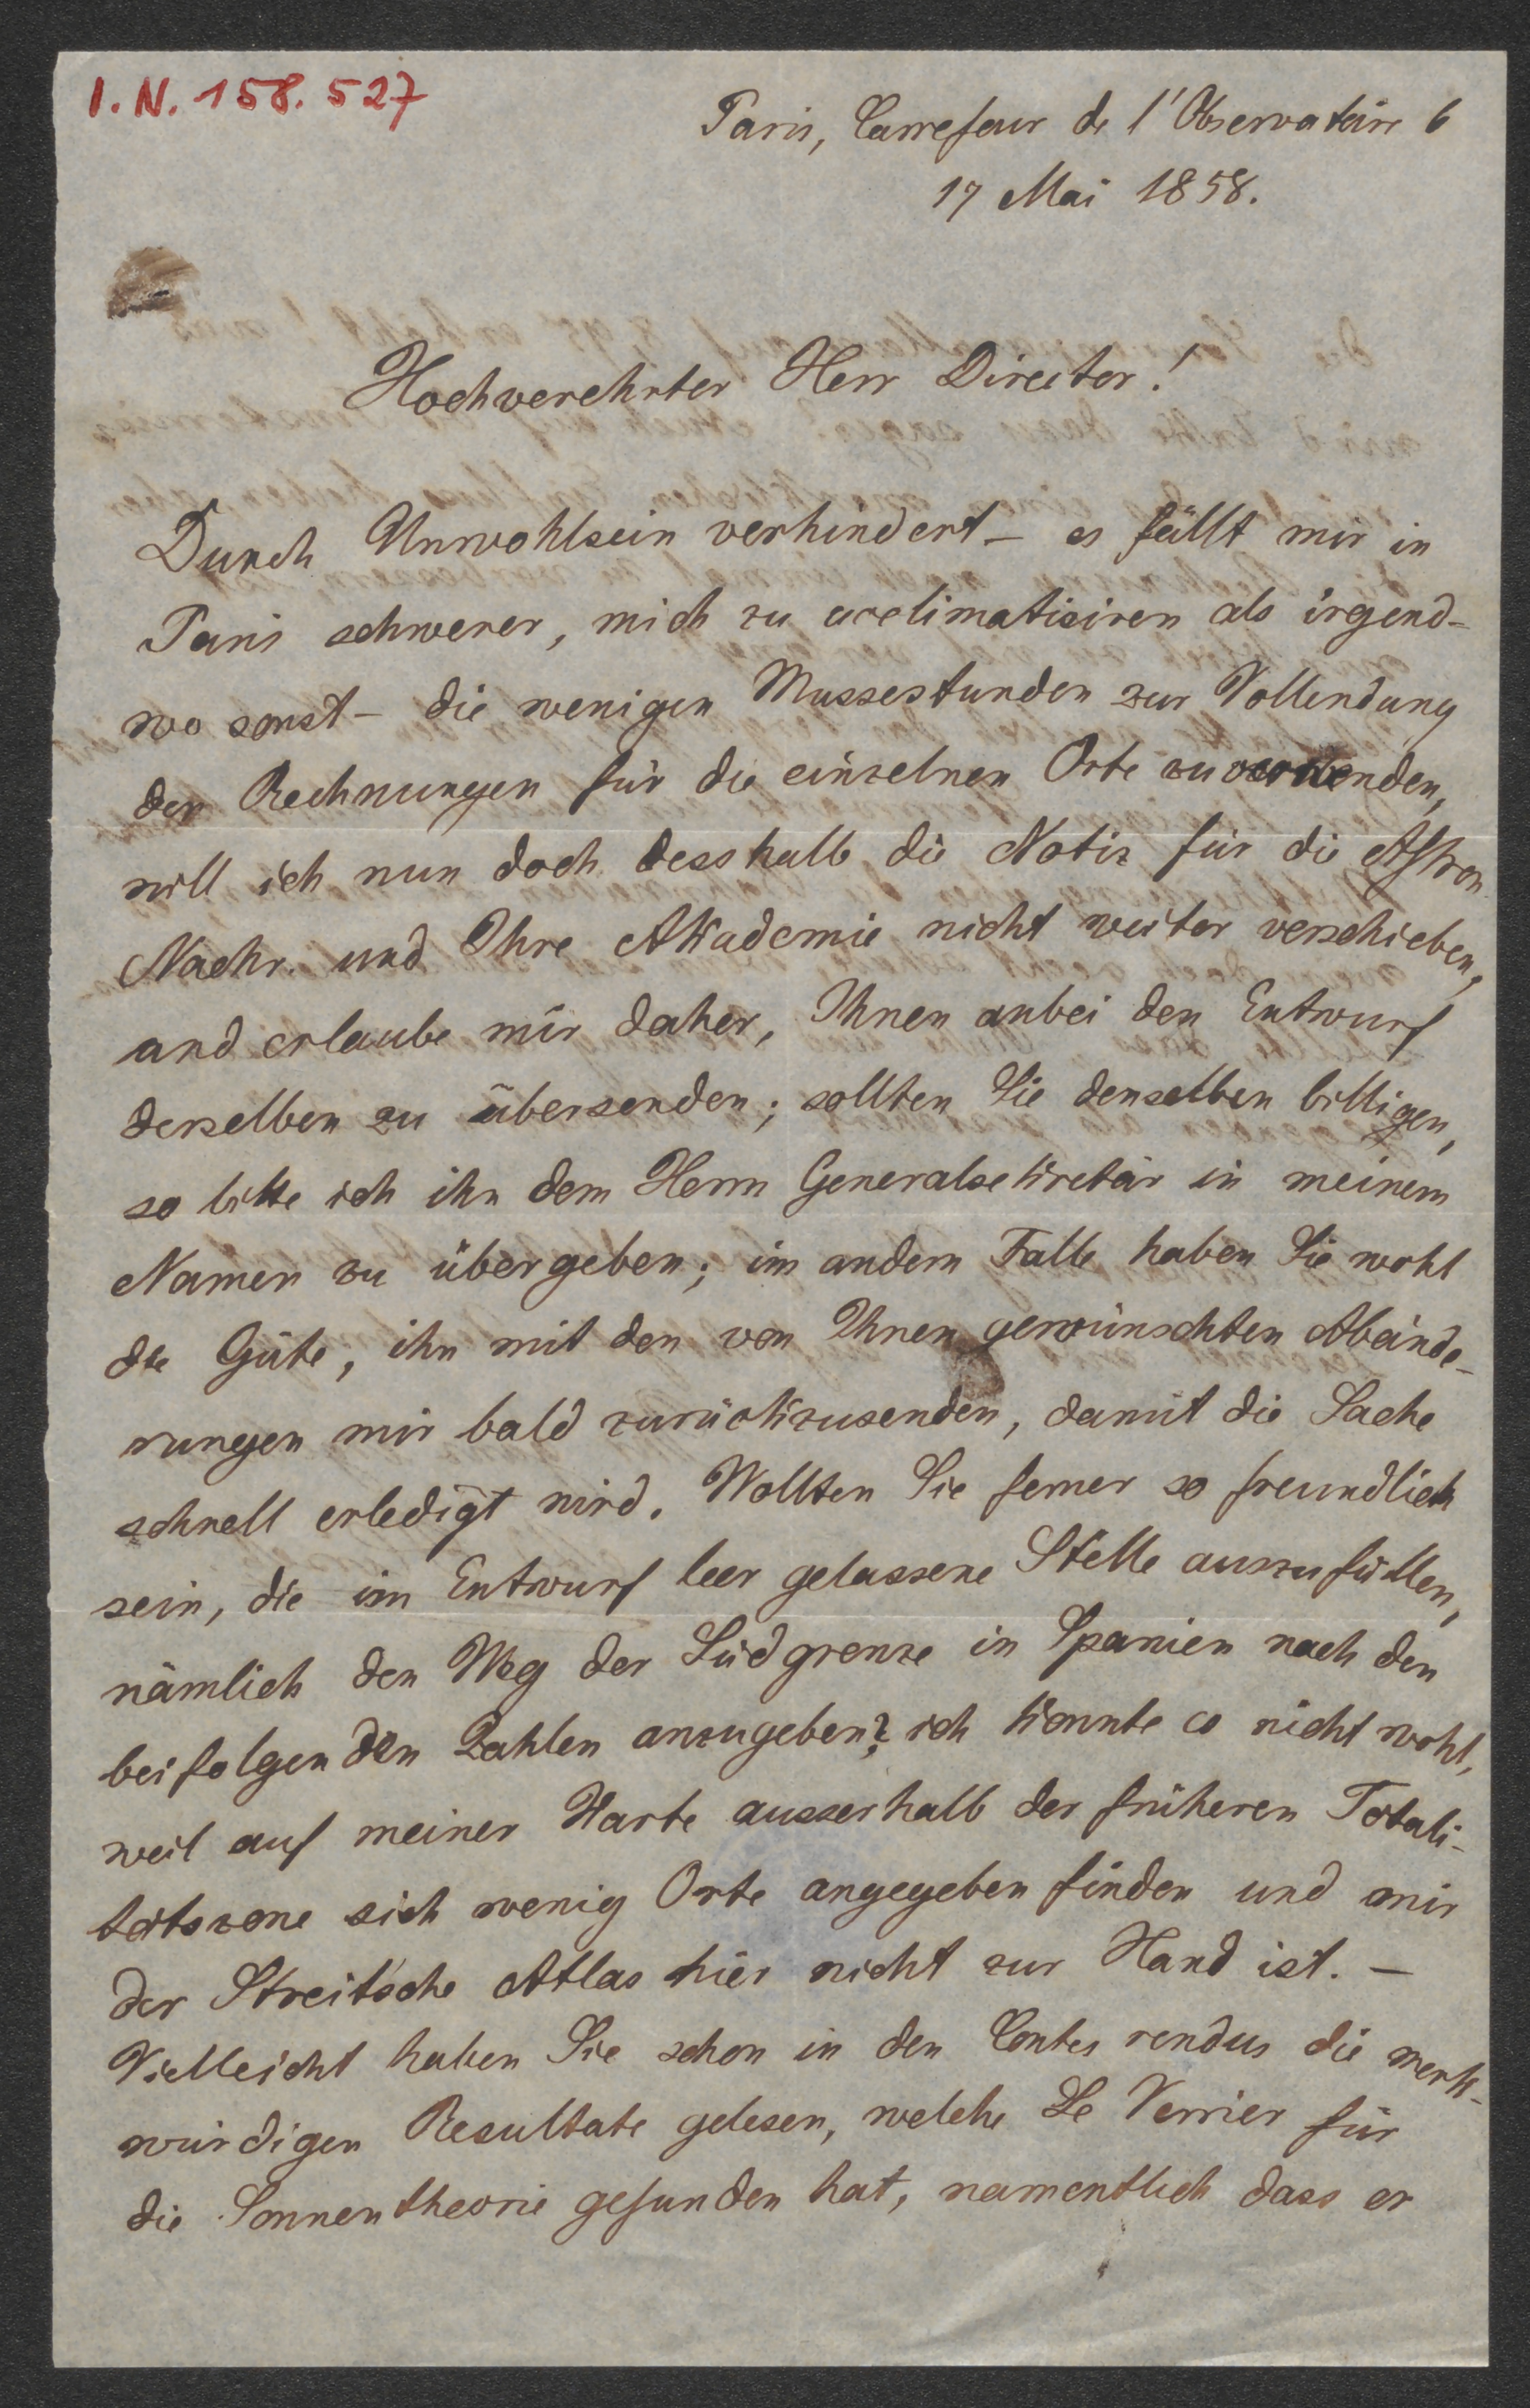 I. N. 158.527
Paris, Carrefour de l'Observatoire 6
17 Mai 1858.
Hochverehrter Herr Director!
Durch Unwohlsein verhindert – es fällt mir in
Paris schwerer, mich zu acclimatisiren als irgend-
wo sonst – die wenigen Mussestunden zur Vollendung
der Rechnungen für die einzelnen Orte zu verwenden,
will ich nun doch desshalb die Notiz für die Astron.
Nachr. und Ihre Akademie nicht weiter verschieben,
und erlaube mir daher, Ihnen anbei den Entwurf
derselben zu übersenden; sollten Sie denselben billigen,
so bitte ich ihn dem Herrn Generalsekretär in meinem
Namen zu übergeben; im andern Falle haben Sie wohl
die Güte, ihn mit den von Ihnen gewünschten Abände-
rungen mir bald zurückzusenden, damit die Sache
schnell erledigt wird. Wollten Sie ferner so freundlich
sein, die im Entwurf leer gelassene Stelle auszufüllen,
nämlich den Weg der Südgrenze in Spanien nach den
beifolgenden Zahlen anzugeben? ich konnte es nicht wohl,
weil auf meiner Karte ausserhalb der früheren Totali-
tätszone sich wenig Orte angegeben finden und mir
der Streit'sche Atlas hier nicht zur Hand ist. –
Vielleicht haben Sie schon in den Contes rendus die merk-
würdigen Resultate gelesen, welche Le Verrier für
die Sonnentheorie gefunden hat, namentlich dass er